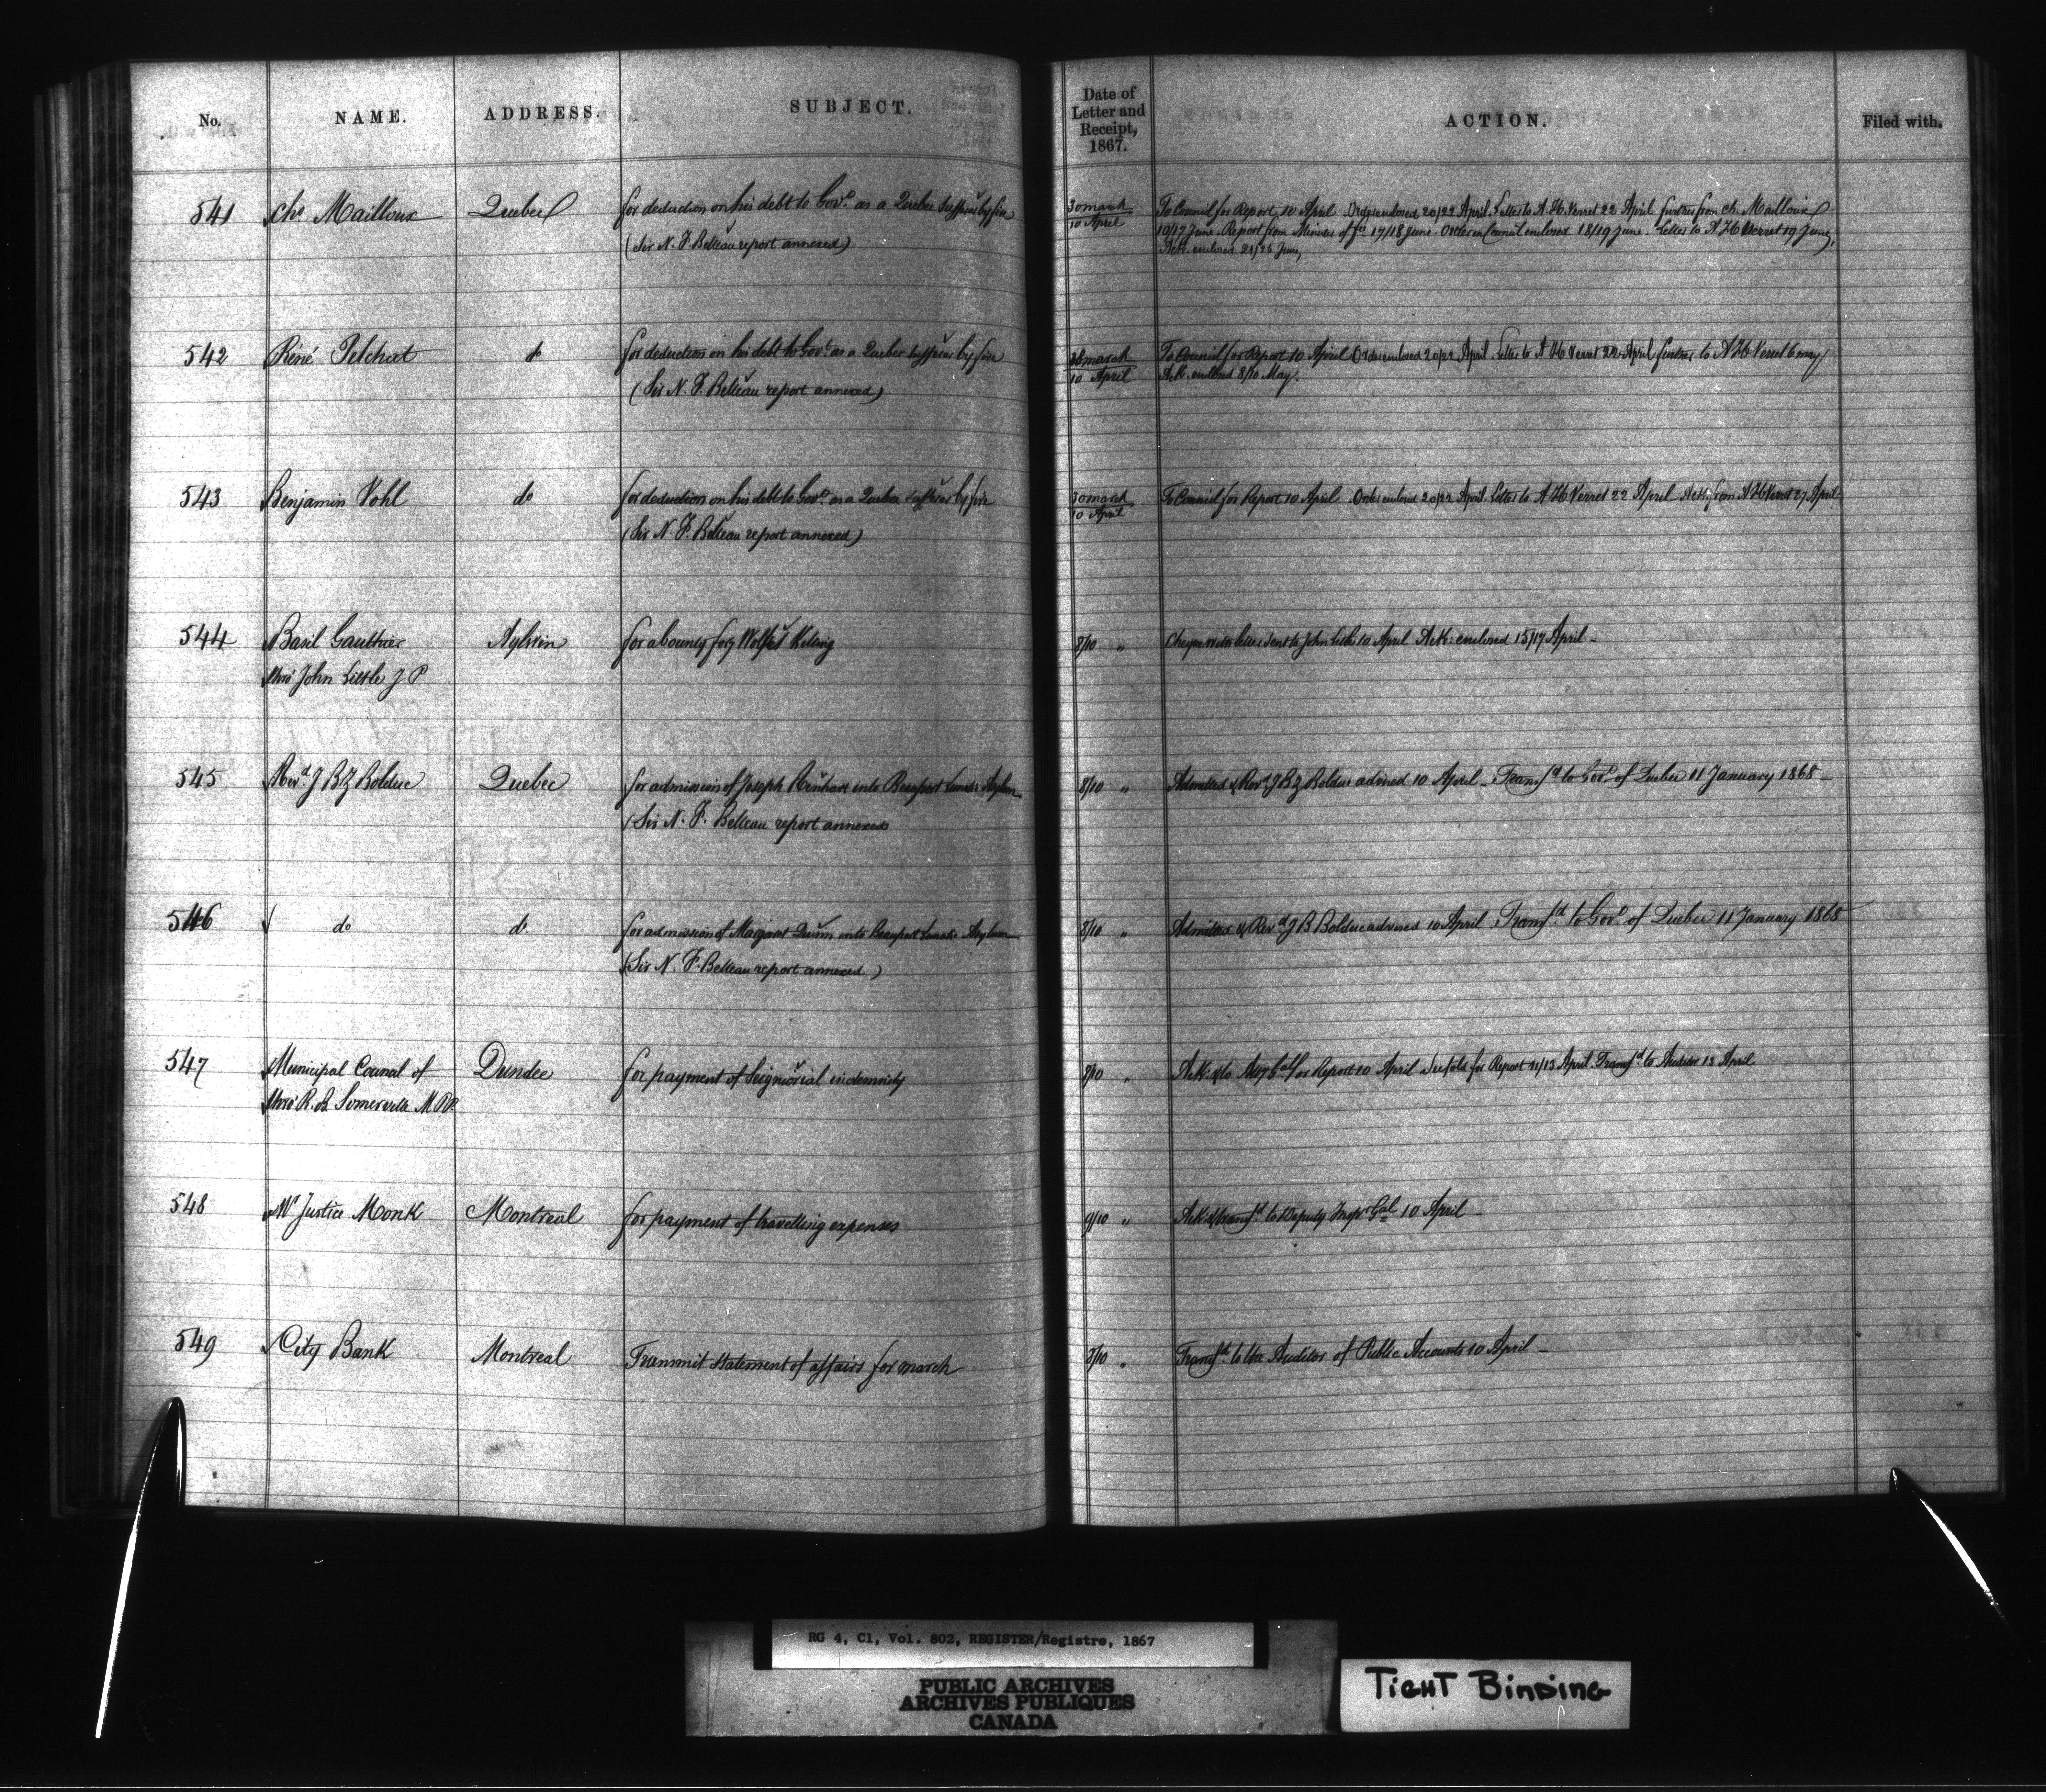 No. NAME. ADDRESS. SUBJECT. Date of Letter and Receipt, 1867. ACTION. Filed with.
541 Chs Mailloux Quebec for deduction on his debt to Govt as a Quebec Sufferer by fire 30 march To Council for Report 10 April Order enclosed 20/22 April Letter to A. H. Verret 22 April further from Ch. Mailloux
(Sir N. F. Belleau report annexed) 10 April 10/17 June. Report from Minister of 17/18 June. Order in Council enclosed 18/19 June. Letter to A H Verret 19 June.
Ack. enclosed 21/25 June
542 René Pelchat do for deduction on his debt to Govt as a Quebec sufferer by fire march To Council for Report 10 April Order enclosed 20/22 April Letter to A H Verret 22 April further to A H Verret 6 may
(Sir N. F. Belleau report annexed) 10 April Ack. enclosed 8/10 May.
543 Benjamin Vohl do for deduction on his debt to Govt as a Quebec sufferer by fire 30 march To Council for Report 10 April Order enclosed 20/22 April. Letter to A H Verret 22 April Ack from A H Verret 27 April
(Sir N. F. Belleau report annexed) 10 April
544 Basil Gauthier Aylwin for a bounty for Wolfs Killing 8/10 " Cheque with letter sent to John Little 10 April Ack: enclosed 15/17 April
thro' John Little J P
545 Revd J B Z Bolduc Quebec for admission of Joseph into Beauport Lunatic Asylum 8/10 " Admitted & Revd J B Z Bolduc advised 10 April Transfd to Govt of Quebec 11 January 1868
(Sir N. F. Belleau report annexed
546 do do for admission of Margaret into Beauport Lunatic Asylum 8/10 " Admitted & Revd J B Bolduc advised 10 April Transfd to Govt of Quebec 11 January 1868
(Sir N. F. Belleau report annexed)
547 Municipal Council of Dundee for payment of Seigneurial indemnity 8/10 " Ack. & to for Report 10 April for Report 11/13 April Transfd to Auditor 13 April
thro' R. B Somerville M.P.P.
548 Mr Justice Monk Montreal for payment of travelling expenses 9/10 " Ack & transfd to Deputy Inspr Genl 10 April
549 City Bank Montreal Transmit statement of affairs for march 8/10 " Transfd to the Auditor of Public Accounts 10 April
RG 4, C1, Vol. 802, REGISTER/Registre, 1867
PUBLIC ARCHIVES
ARCHIVES PUBLIQUES
CANADA
TIGHT BINDING